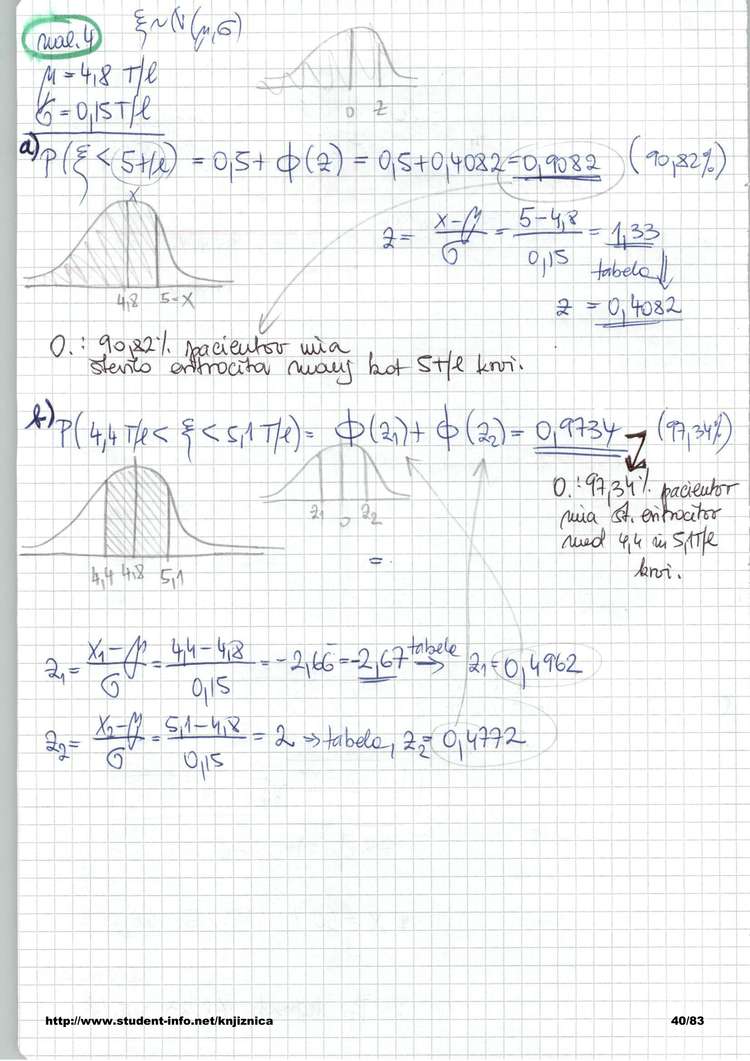 nal. 4
ξ ~ N(μ, σ)
μ = 4,8 T/l
σ = 0,15 T/l
0 z
a) P(ξ < 5 T/l) = 0,5 + Φ(z) = 0,5 + 0,4082 = 0,9082 (90,82%)
x
z = (x-μ)/σ = (5-4,8)/0,15 = 1,33
tabela
z = 0,4082
4,8 5-x
O.: 90,82% pacientov ima
število eritrocita manj kot 5 T/l krvi.
b) P(4,4 T/l < ξ < 5,1 T/l) = Φ(z₁) + Φ(z₂) = 0,9734 (97,34%)
z₁ 0 z₂
4,4 4,8 5,1
O.: 97,34% pacientov
ima št. eritrocitov
med 4,4 in 5,1 T/l
krvi.
=
z₁ = (x₁-μ)/σ = (4,4-4,8)/0,15 = -2,66 = -2,67 tabele → z₁ = 0,4962
z₂ = (x₂-μ)/σ = (5,1-4,8)/0,15 = 2 ⇒ tabela, z₂ = 0,4772
http://www.student-info.net/knjiznica 40/83